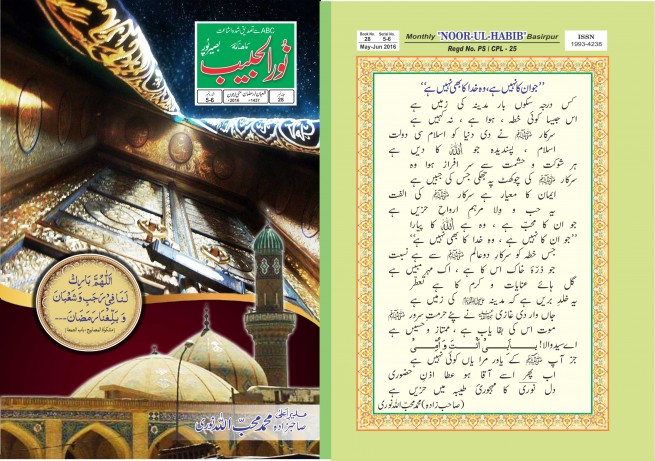 ABC سے تصدیق شدہ اشاعت
ماہنامہ
نورالحبیب
بصیرپور
5-6
2016
1437
28
اَللّٰهُمَّ بَارِكْ
لَنَا فِيْ رَجَبٍ وَّشَعْبَانَ
وَبَلِّغْنَا رَمَضَانَ ---
مدیر اعلیٰ
صاحبزادہ محمد محب اللہ نوری
Book No. 28 Serial No. 5-6
May-Jun 2016
Monthly "NOOR-UL-HABIB" Basirpur
Regd No. PS / CPL - 25
ISSN
1993-4238
’’جو ان کا نہیں ہے، وہ خدا کا بھی نہیں ہے‘‘
کس درجہ سکوں بار مدینہ کی زمیں ہے
اس جیسا کوئی خطہ، ہوا ہے، نہ کہیں ہے
سرکار ﷺ نے دی دنیا کو اسلام سی دولت
اسلام، پسندیدہ جو اللہ کا دیں ہے
ہر شوکت و حشمت سے سر افراز ہوا وہ
سرکار ﷺ کی چوکھٹ پہ جھکی جس کی جبیں ہے
ایمان کا معیار ہے سرکار ﷺ کی الفت
یہ حب و ولا مرہم ارواحِ حزیں ہے
جو ان کا محب ہے، وہ ہے اللہ کا پیارا
’’جو ان کا نہیں ہے، وہ خدا کا بھی نہیں ہے‘‘
جس خطہ کو سرکار دوعالم ﷺ سے ہے نسبت
جو ذرّۂ خاک اس کا ہے، اک مہر مبیں ہے
گل ہائے عنایات و کرم کا ہے تعطر
یہ خلد بریں ہے کہ مدینہ ﷺ کی زمیں ہے
جاں وار دی غازی نے پئے حرمتِ سرور ﷺ
موت اس کی بقا یاب ہے، ممتاز و حسیں ہے
اے سیدِ والا! بِاَبِیْ اَنْتَ وَ اُمِّیْ
جز آپ ﷺ کے یاور مرا یاں کوئی نہیں ہے
اب پھر اسے آقا ہو عطا اذنِ حضوری
دل نوری کا مہجوریِ طیبہ میں حزیں ہے
(صاحب زادہ) محمد محب اللہ نوری